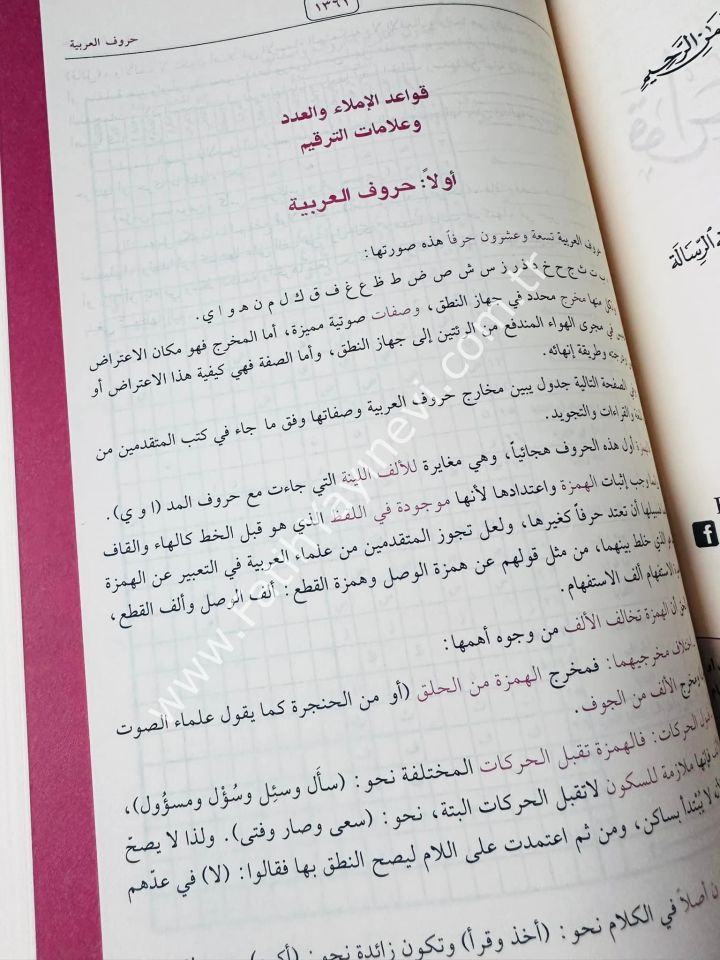 ١٣٦١
حروف العربية
قواعد الإملاء والعدد
وعلامات الترقيم
أولاً: حروف العربية
حروف العربية تسعة وعشرون حرفاً هذه صورتها:
ب ت ث ج ح خ د ذ ر ز س ش ص ض ط ظ ع غ ف ق ك ل م ن هـ و ا ي.
منها مخرج محدد في جهاز النطق، وصفات صوتية مميزة، أما المخرج فهو مكان الاعتراض
في مجرى الهواء المندفع من الرئتين إلى جهاز النطق، وأما الصفة فهي كيفية هذا الاعتراض أو
وطريقة إنهائه.
الصفحة التالية جدول يبين مخارج حروف العربية وصفاتها وفق ما جاء في كتب المتقدمين من
والقراءات والتجويد.
أول هذه الحروف هجائياً، وهي مغايرة للألف اللينة التي جاءت مع حروف المد (ا و ي).
وجب إثبات الهمزة واعتدادها لأنها موجودة في اللفظ الذي هو قبل الخط كالهاء والقاف
أن تعتد حرفاً كغيرها، ولعل تجوز المتقدمين من علماء العربية في التعبير عن الهمزة
الذي خلط بينهما، من مثل قولهم عن همزة الوصل وهمزة القطع: ألف الوصل وألف القطع،
الاستفهام ألف الاستفهام.
أن الهمزة تخالف الألف من وجوه أهمها:
اختلاف مخرجيهما: فمخرج الهمزة من الحلق (أو من الحنجرة كما يقول علماء الصوت
ومخرج الألف من الجوف.
الحركات: فالهمزة تقبل الحركات المختلفة نحو: (سأَل وسئِل وسُؤْل ومسؤُول)،
فإنها ملازمة للسكون لاتقبل الحركات البتة، نحو: (سعى وصار وفتى). ولذا لا يصحّ
لا يُبتدأ بساكن، ومن ثم اعتمدت على اللام ليصح النطق بها فقالوا: (لا) في عدّهم
أصلاً في الكلام نحو: (أخذ وقرأ) وتكون زائدة نحو:
الرحيم
الرسالة
www.FatihYayinevi.com.tr